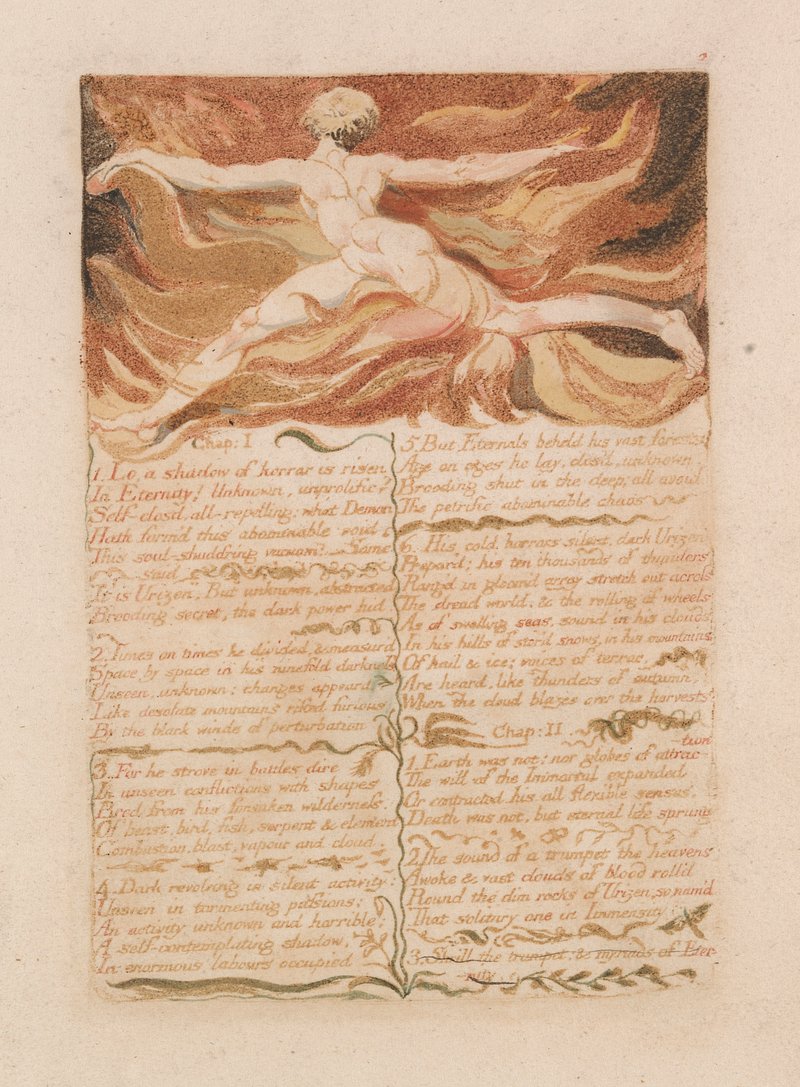 Chap: I
1. Lo, a shadow of horror is risen
In Eternity! Unknown, unprolific?
Self-closd, all-repelling; what Demon
Hath form'd this abominable void
This soul-shudd'ring vacuum?—Some
said
It is Urizen, But unknown, abstracted
Brooding secret, the dark power hid.
2. Times on times he divided, & measur'd
Space by space in his ninefold darkness
Unseen, unknown: changes appeard
Like desolate mountains rifted furious
By the black winds of perturbation
3. For he strove in battles dire
In unseen conflictions with shapes
Bred from his forsaken wilderness,
Of beast, bird, fish, serpent & element
Combustion, blast, vapour and cloud.
4. Dark revolving in silent activity:
Unseen in tormenting passions;
An activity unknown and horrible;
A self-contemplating shadow,
In enormous labours occupied
5. But Eternals beheld his vast forests
Age on ages he lay, clos'd, unknown,
Brooding shut in the deep; all avoid
The petrific abominable chaos
6. His cold horrors silent, dark Urizen
Prepar'd: his ten thousands of thunders
Rang'd in gloom'd array stretch out across
The dread world, & the rolling of wheels
As of swelling seas, sound in his clouds
In his hills of stor'd snows, in his mountains
Of hail & ice; voices of terror,
Are heard, like thunders of autumn,
When the cloud blazes over the harvests
Chap: II
1. Earth was not: nor globes of attrac-
tion
The will of the Immortal expanded
Or contracted his all flexible senses.
Death was not, but eternal life sprung
2. The sound of a trumpet the heavens
Awoke & vast clouds of blood roll'd
Round the dim rocks of Urizen, so nam'd
That solitary one in Immensity
3. Shrill the trumpet: & myriads of Eter-
nity,